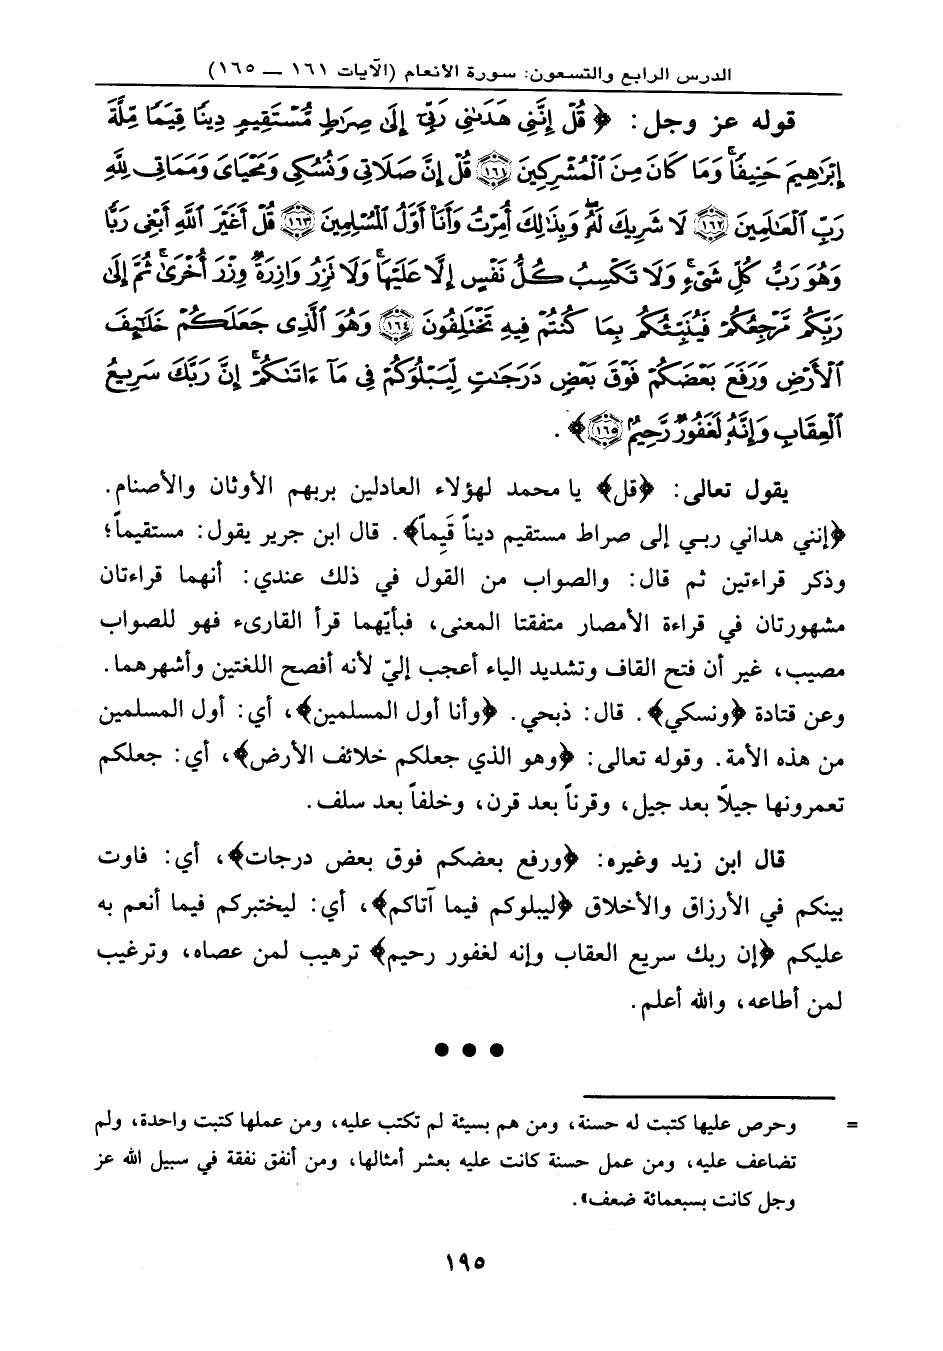 الدرس الرابع والتسعون: سورة الأنعام (الآيات ١٦١ — ١٦٥)
قوله عز وجل: ﴿ قُلْ إِنَّنِي هَدَىٰنِي رَبِّيٓ إِلَىٰ صِرَٰطٍ مُّسْتَقِيمٍ دِينًا قِيَمًا مِّلَّةَ
إِبْرَٰهِيمَ حَنِيفًا ۚ وَمَا كَانَ مِنَ ٱلْمُشْرِكِينَ ١٦١ قُلْ إِنَّ صَلَاتِي وَنُسُكِي وَمَحْيَايَ وَمَمَاتِي لِلَّهِ
رَبِّ ٱلْعَٰلَمِينَ ١٦٢ لَا شَرِيكَ لَهُۥ ۖ وَبِذَٰلِكَ أُمِرْتُ وَأَنَا۠ أَوَّلُ ٱلْمُسْلِمِينَ ١٦٣ قُلْ أَغَيْرَ ٱللَّهِ أَبْغِي رَبًّا
وَهُوَ رَبُّ كُلِّ شَيْءٍ ۚ وَلَا تَكْسِبُ كُلُّ نَفْسٍ إِلَّا عَلَيْهَا ۚ وَلَا تَزِرُ وَازِرَةٌ وِزْرَ أُخْرَىٰ ۚ ثُمَّ إِلَىٰ
رَبِّكُم مَّرْجِعُكُمْ فَيُنَبِّئُكُم بِمَا كُنتُمْ فِيهِ تَخْتَلِفُونَ ١٦٤ وَهُوَ ٱلَّذِي جَعَلَكُمْ خَلَٰٓئِفَ
ٱلْأَرْضِ وَرَفَعَ بَعْضَكُمْ فَوْقَ بَعْضٍ دَرَجَٰتٍ لِّيَبْلُوَكُمْ فِي مَآ ءَاتَىٰكُمْ ۗ إِنَّ رَبَّكَ سَرِيعُ
ٱلْعِقَابِ وَإِنَّهُۥ لَغَفُورٌ رَّحِيمٌۢ ١٦٥ ﴾ .
يقول تعالى: ﴿قل﴾ يا محمد لهؤلاء العادلين بربهم الأوثان والأصنام.
﴿إنني هداني ربي إلى صراط مستقيم ديناً قَيِماً﴾. قال ابن جرير يقول: مستقيماً؛
وذكر قراءتين ثم قال: والصواب من القول في ذلك عندي: أنهما قراءتان
مشهورتان في قراءة الأمصار متفقتا المعنى، فبأيّهما قرأ القارىء فهو للصواب
مصيب، غير أن فتح القاف وتشديد الياء أعجب إليّ لأنه أفصح اللغتين وأشهرهما.
وعن قتادة ﴿ونسكي﴾. قال: ذبحي. ﴿وأنا أول المسلمين﴾، أي: أول المسلمين
من هذه الأمة. وقوله تعالى: ﴿وهو الذي جعلكم خلائف الأرض﴾، أي: جعلكم
تعمرونها جيلاً بعد جيل، وقرناً بعد قرن، وخلفاً بعد سلف.
قال ابن زيد وغيره: ﴿ورفع بعضكم فوق بعض درجات﴾، أي: فاوت
بينكم في الأرزاق والأخلاق ﴿ليبلوكم فيما آتاكم﴾، أي: ليختبركم فيما أنعم به
عليكم ﴿إن ربك سريع العقاب وإنه لغفور رحيم﴾ ترهيب لمن عصاه، وترغيب
لمن أطاعه، والله أعلم.
● ● ●
= وحرص عليها كتبت له حسنة، ومن هم بسيئة لم تكتب عليه، ومن عملها كتبت واحدة، ولم
تضاعف عليه، ومن عمل حسنة كانت عليه بعشر أمثالها، ومن أنفق نفقة في سبيل الله عز
وجل كانت بسبعمائة ضعف».
١٩٥